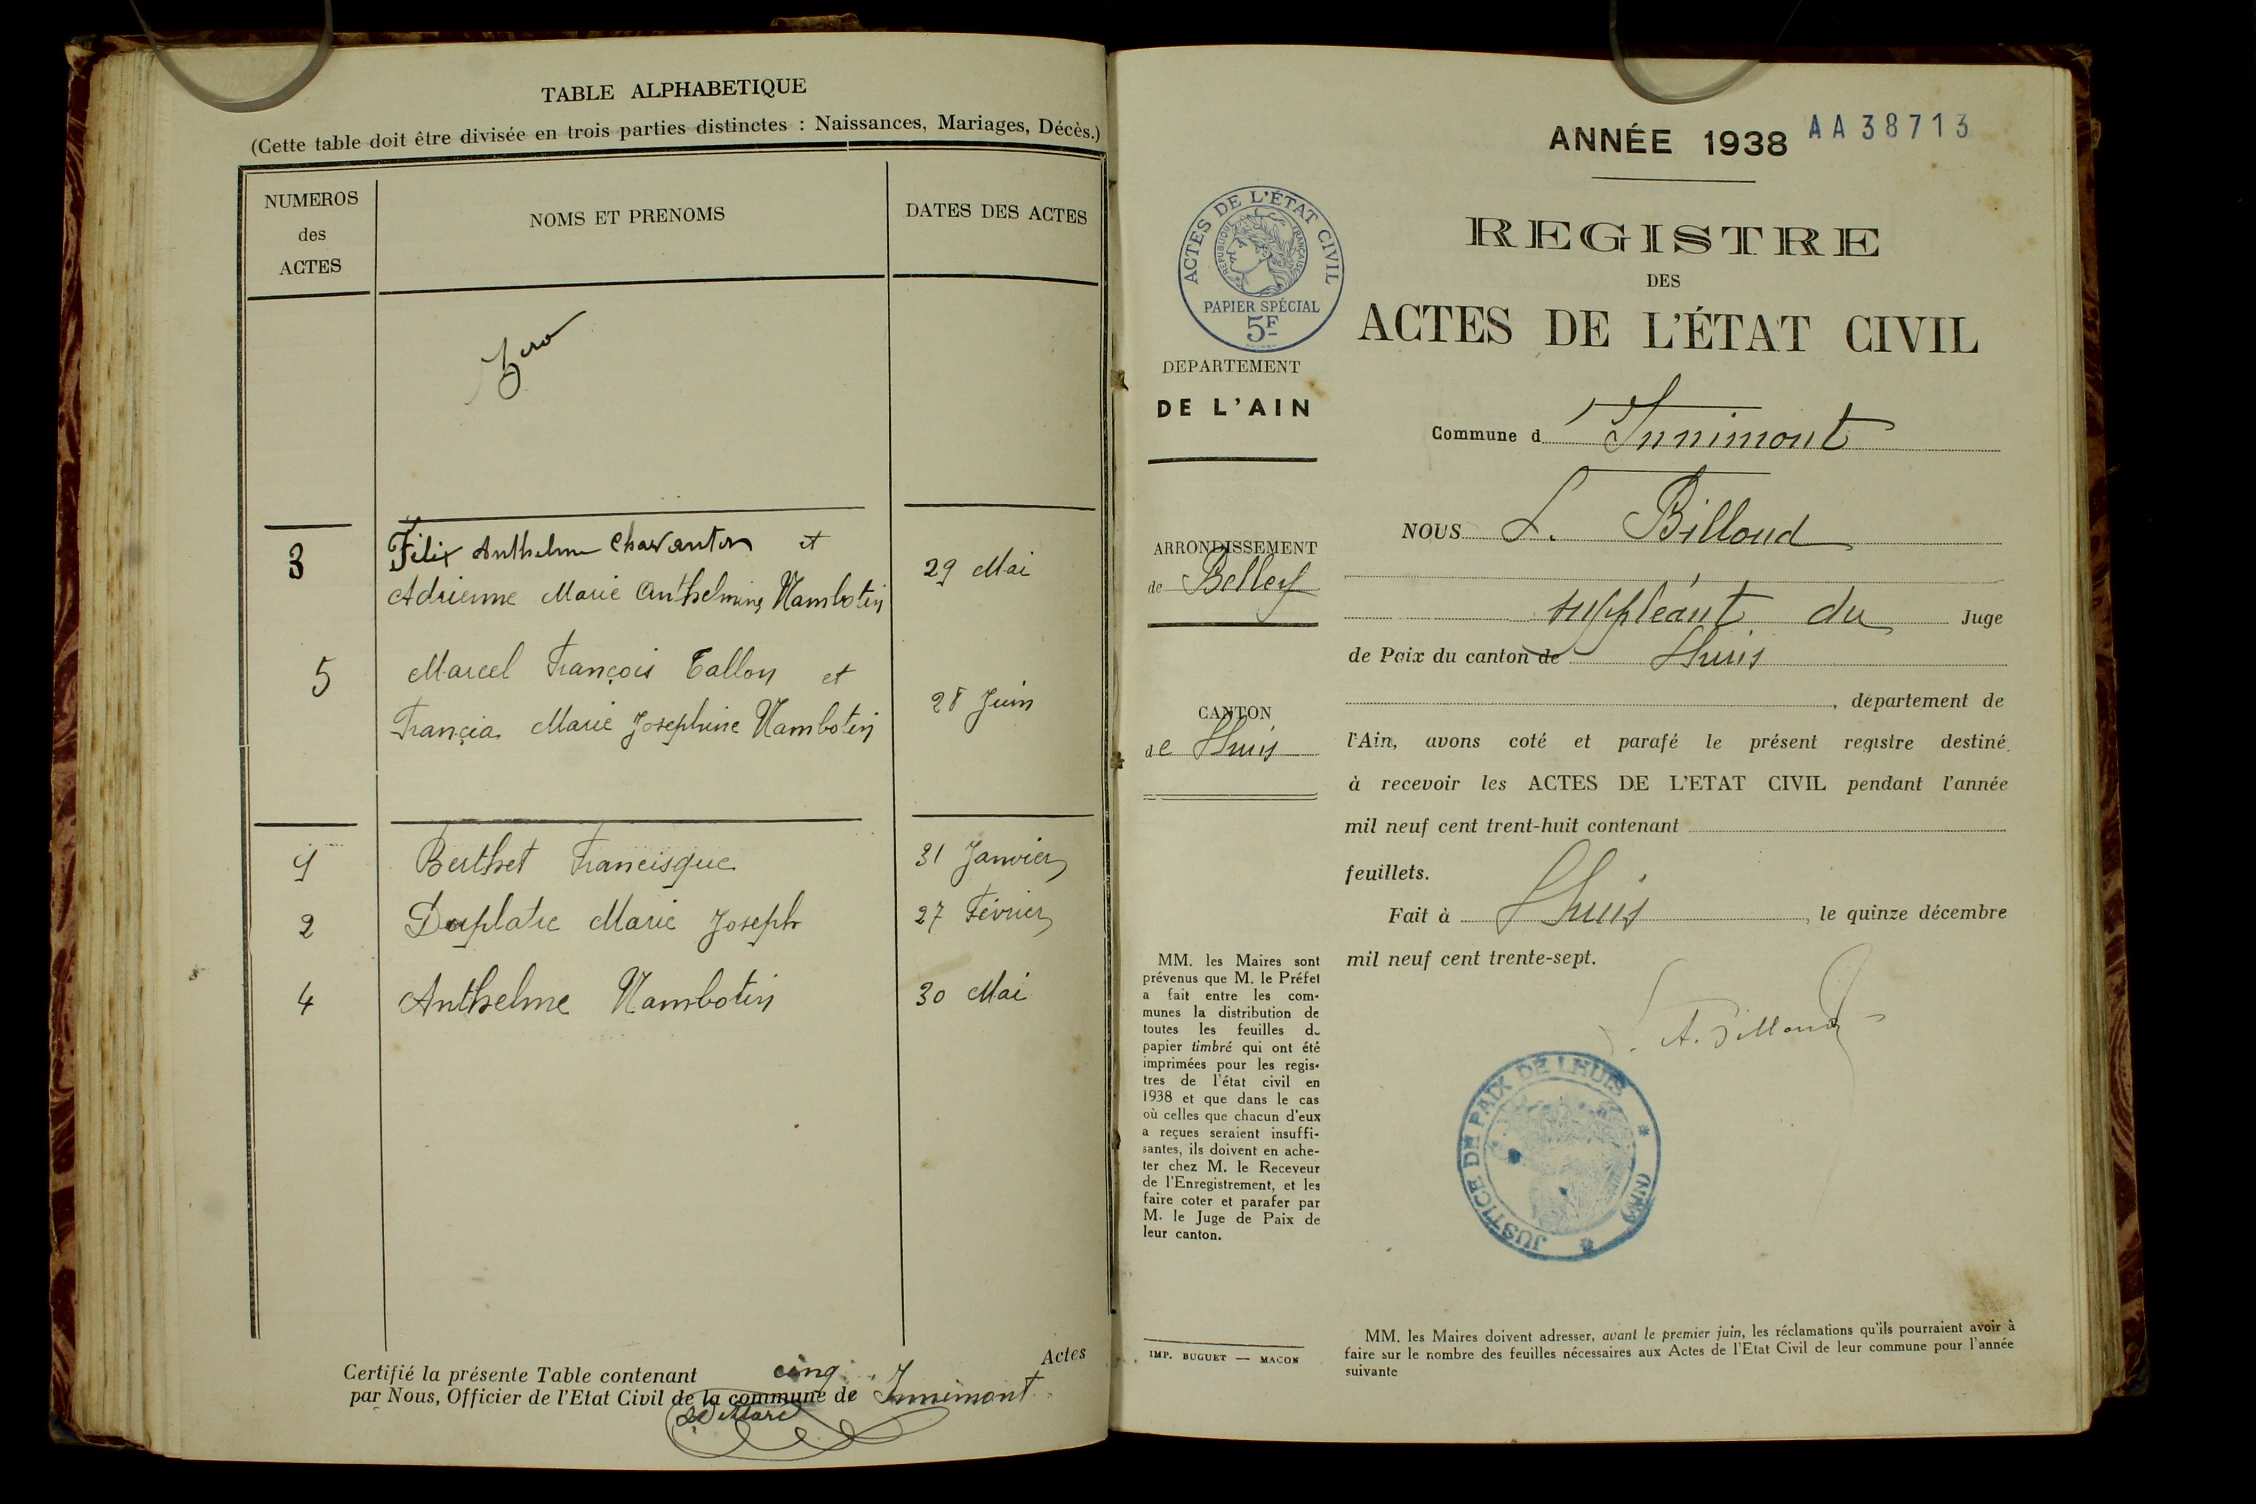 TABLE ALPHABETIQUE
(Cette table doit être divisée en trois parties distinctes : Naissances, Mariages, Décès.)
NUMEROS
des
ACTES
NOMS ET PRENOMS
DATES DES ACTES
Zero
3
Félix Anthelme Chavanton et
Adrienne Marie Anthelmine Nambotin
29 Mai
5
Marcel François Tallon et
França Marie Josephine Nambotin
28 Juin
1
Berthet Francisque
31 Janvier
2
Duplatre Marie Joseph
27 Février
4
Anthelme Nambotin
30 Mai
Certifié la présente Table contenant cinq Actes
par Nous, Officier de l'Etat Civil de la commune de Innimont
ANNÉE 1938
AA38713
REGISTRE
DES
ACTES DE L'ÉTAT CIVIL
ACTES DE L'ÉTAT CIVIL
RÉPUBLIQUE FRANÇAISE
PAPIER SPÉCIAL
5F
DEPARTEMENT
DE L'AIN
ARRONDISSEMENT
de Belley
CANTON
de Lhuis
MM. les Maires sont
prévenus que M. le Préfet
a fait entre les com-
munes la distribution de
toutes les feuilles du
papier timbré qui ont été
imprimées pour les regis-
tres de l'état civil en
1938 et que dans le cas
où celles que chacun d'eux
a reçues seraient insuffi-
santes, ils doivent en ache-
ter chez M. le Receveur
de l'Enregistrement, et les
faire coter et parafer par
M. le Juge de Paix de
leur canton.
IMP. BUGUET — MACON
Commune d Innimont
NOUS L. Billoud
suppléant du Juge
de Paix du canton de Lhuis
, département de
l'Ain, avons coté et parafé le présent registre destiné
à recevoir les ACTES DE L'ETAT CIVIL pendant l'année
mil neuf cent trent-huit contenant
feuillets.
Fait à Lhuis, le quinze décembre
mil neuf cent trente-sept.
A. Billoud
JUSTICE DE PAIX DE LHUIS
(AIN)
MM. les Maires doivent adresser, avant le premier juin, les réclamations qu'ils pourraient avoir à
faire sur le nombre des feuilles nécessaires aux Actes de l'Etat Civil de leur commune pour l'année
suivante